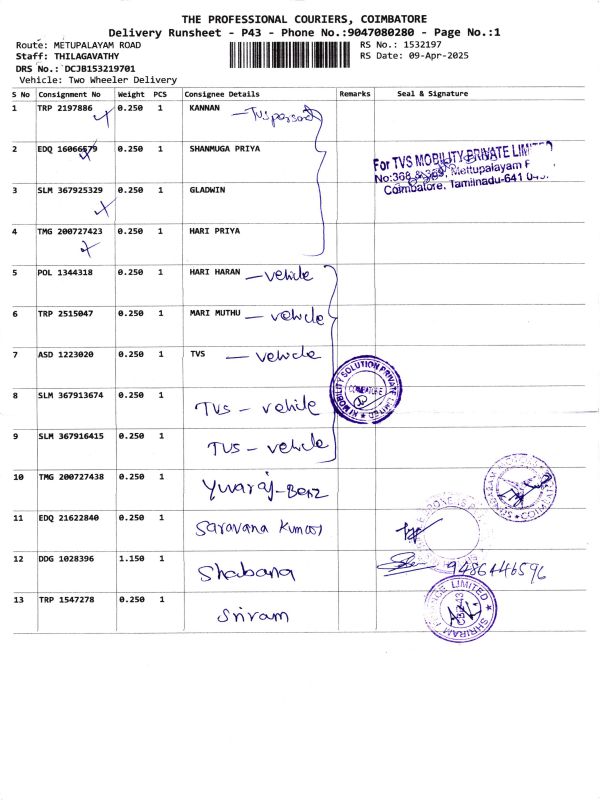 THE PROFESSIONAL COURIERS, COIMBATORE
Delivery Runsheet - P43 - Phone No.:9047080280 - Page No.:1
Route: METUPALAYAM ROAD RS No.: 1532197
Staff: THILAGAVATHY RS Date: 09-Apr-2025
DRS No.: DCJB153219701
Vehicle: Two Wheeler Delivery
S No Consignment No Weight PCS Consignee Details Remarks Seal & Signature
1 TRP 2197886 0.250 1 KANNAN - TVS person
2 EDQ 16066579 0.250 1 SHANMUGA PRIYA
For TVS MOBILITY PRIVATE LIMIT
No:368 & 369, Mettupalayam
Coimbatore, Tamilnadu-641
3 SLM 367925329 0.250 1 GLADWIN
4 TMG 200727423 0.250 1 HARI PRIYA
5 POL 1344318 0.250 1 HARI HARAN - vehicle
6 TRP 2515047 0.250 1 MARI MUTHU - vehicle
7 ASD 1223020 0.250 1 TVS - vehicle
KI MOBILITY SOLUTION PRIVATE LIMITED
COIMBATORE
8 SLM 367913674 0.250 1 TVS - vehile
9 SLM 367916415 0.250 1 TVS - vehicle
10 TMG 200727438 0.250 1 Yuvaraj - Benz
11 EDQ 21622840 0.250 1 Saravana Kumar
12 DDG 1028396 1.150 1 Shabana 9486446596
13 TRP 1547278 0.250 1 Sriram
SHRIRAM FINANCE LIMITED